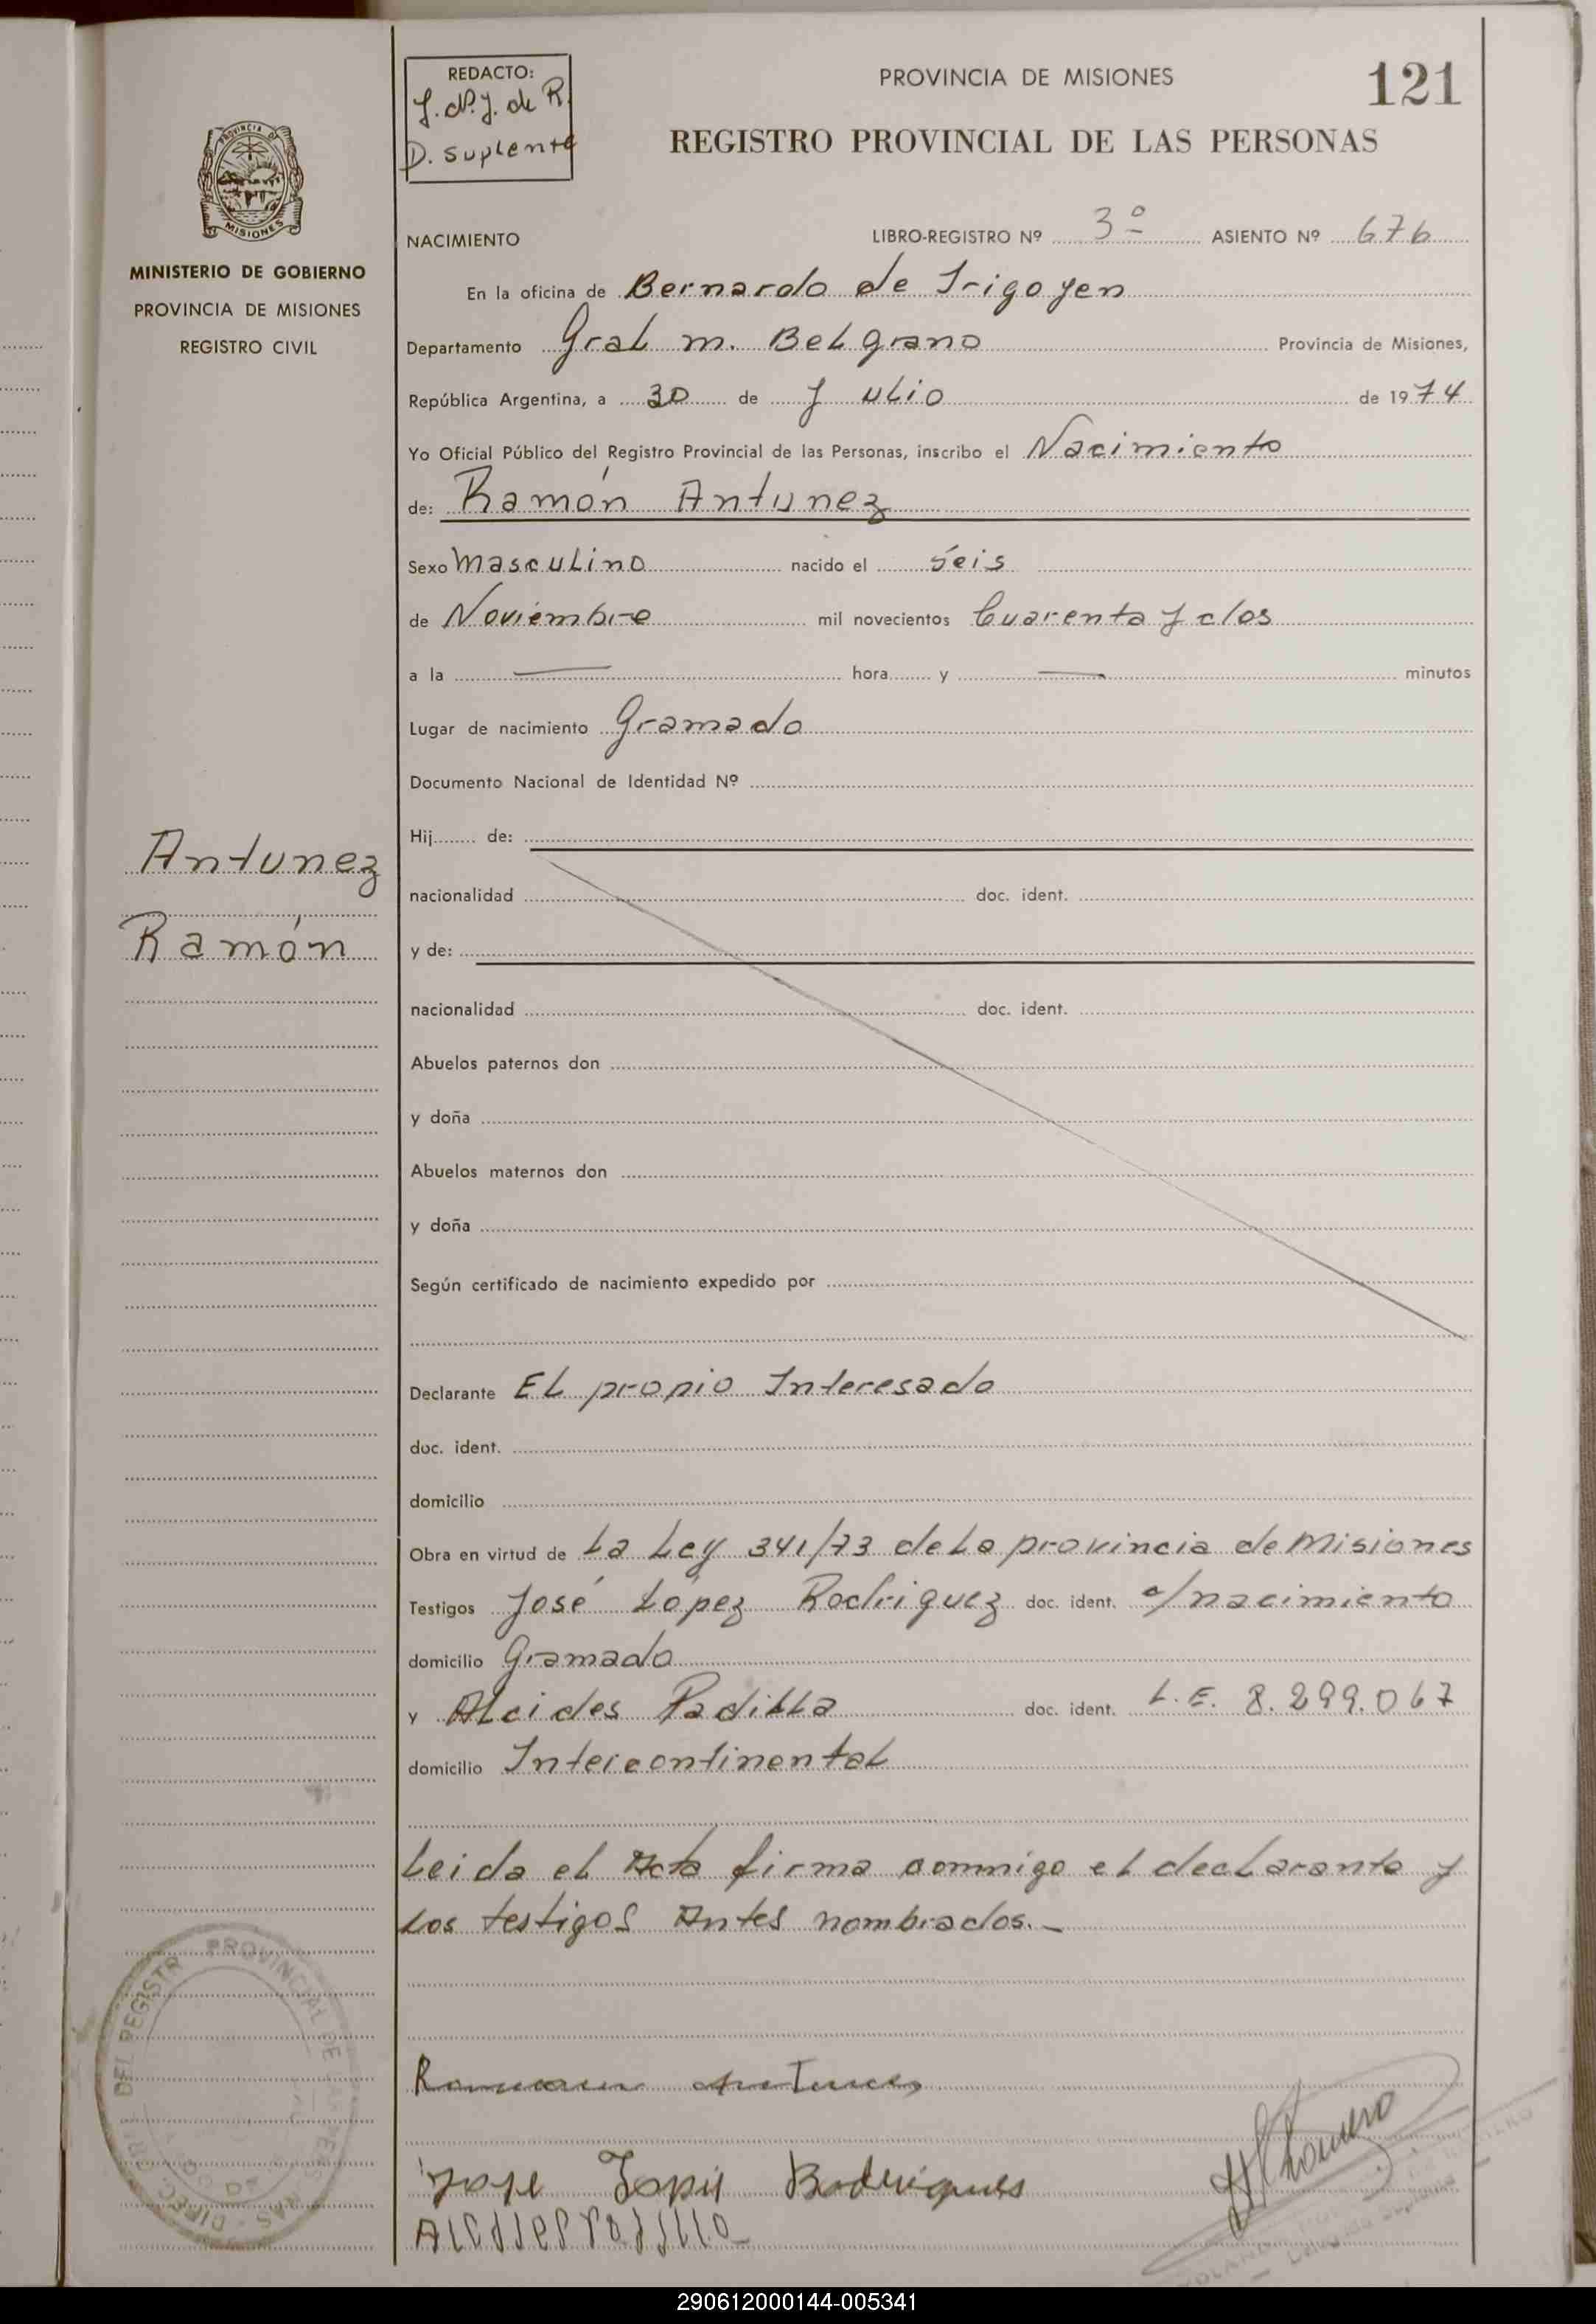 REDACTO:
J. de J. de R.
D. suplente
PROVINCIA DE MISIONES
121
REGISTRO PROVINCIAL DE LAS PERSONAS
PROVINCIA DE
MISIONES
MINISTERIO DE GOBIERNO
PROVINCIA DE MISIONES
REGISTRO CIVIL
NACIMIENTO
LIBRO-REGISTRO Nº 3º ASIENTO Nº 676
En la oficina de Bernardo de Irigoyen
Departamento Gral m. Belgrano Provincia de Misiones,
República Argentina, a 30 de Julio de 1974
Yo Oficial Público del Registro Provincial de las Personas, inscribo el Nacimiento
de: Ramón Antunez
Sexo Masculino nacido el seis
de Noviembre mil novecientos Cuarenta y dos
a la — hora y — minutos
Lugar de nacimiento Gramado
Documento Nacional de Identidad Nº
Hij de:
Antunez
Ramón
nacionalidad doc. ident.
y de:
nacionalidad doc. ident.
Abuelos paternos don
y doña
Abuelos maternos don
y doña
Según certificado de nacimiento expedido por
Declarante El propio Interesado
doc. ident.
domicilio
Obra en virtud de La Ley 341/73 de La provincia de Misiones
Testigos José López Rodriguez doc. ident. c/nacimiento
domicilio Gramado
y Alcides Padilla doc. ident. L.E. 8.299.067
domicilio Intercontinental
Leida el Acta firma conmigo el declarante y
Los testigos Antes nombrados.-
DIREC. GRL. DEL REGISTR PROVINCIAL DE
Ramon Antunes
Jose Lopis Rodrigues
Alcides Padilla
Romero
Delegado Suplente
290612000144-005341